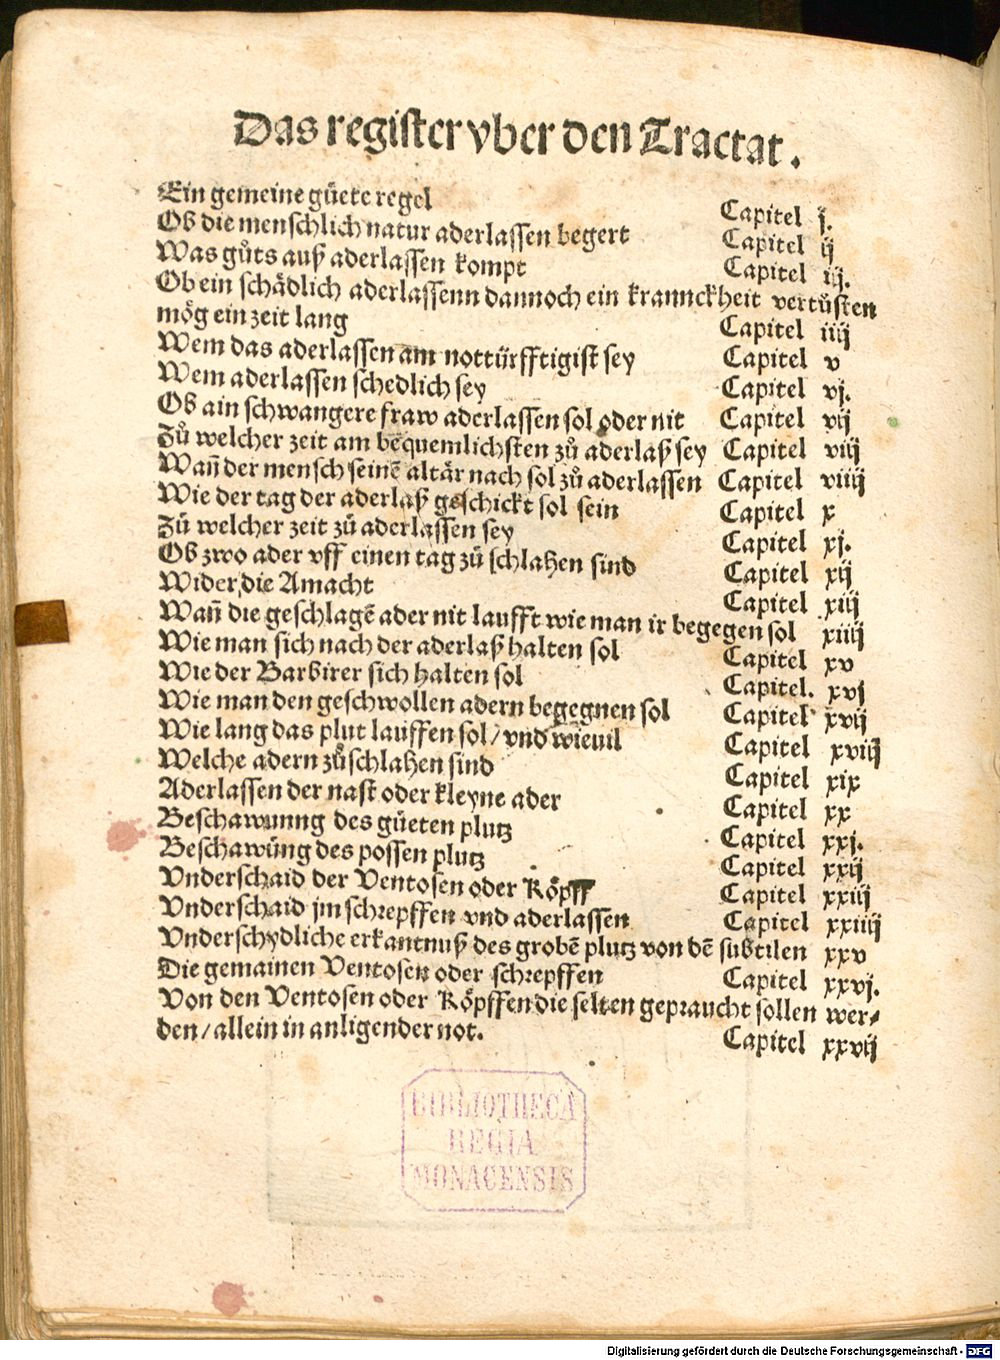 Das register vber den Tractat.
Ein gemeine gůete regel Capitel j.
Ob die menschlich natur aderlassen begert Capitel ij
Was gůts auß aderlassen kompt Capitel iij.
Ob ein schådlich aderlassenn dannoch ein kranncкheit vertůsten
mög ein zeit lang Capitel iiij
Wem das aderlassen am nottürfftigist sey Capitel v
Wem aderlassen schedlich sey Capitel vj.
Ob ain schwangere fraw aderlassen sol oder nit Capitel vij
Zů welcher zeit am bequemlichsten zů aderlaß sey Capitel viij
Wañ der mensch seinē altär nach sol zů aderlassen Capitel viiij
Wie der tag der aderlaß geschickt sol sein Capitel x
Zů welcher zeit zů aderlassen sey Capitel xj.
Ob zwo ader vff einen tag zů schlahen sind Capitel xij
Wider die Amacht Capitel xiij
Wañ die geschlagē ader nit laufft wie man ir begegen sol xiiij
Wie man sich nach der aderlaß halten sol Capitel xv
Wie der Barbirer sich halten sol Capitel. xvj
Wie man den geschwollen adern begegnen sol Capitel xvij
Wie lang das plut lauffen sol/ vnd wieuil Capitel xviij
Welche adern zůschlahen sind Capitel xix
Aderlassen der nast oder kleyne ader Capitel xx
Beschawunng des gůeten plutz Capitel xxj.
Beschawůng des possen plutz Capitel xxij
Vnderschaid der Ventosen oder Köpff Capitel xxiij
Vnderschaid jm schrepffen vnd aderlassen Capitel xxiiij
Vnderschydliche erkantnuß des grobē plutz von dē subtilen xxv
Die gemainen Ventosen oder schrepffen Capitel xxvj.
Von den Ventosen oder Köpffen die selten gepraucht sollen wer⸗
den/ allein in anligender not. Capitel xxvij
BIBLIOTHECA
REGIA
MONACENSIS
Digitalisierung gefördert durch die Deutsche Forschungsgemeinschaft - DFG